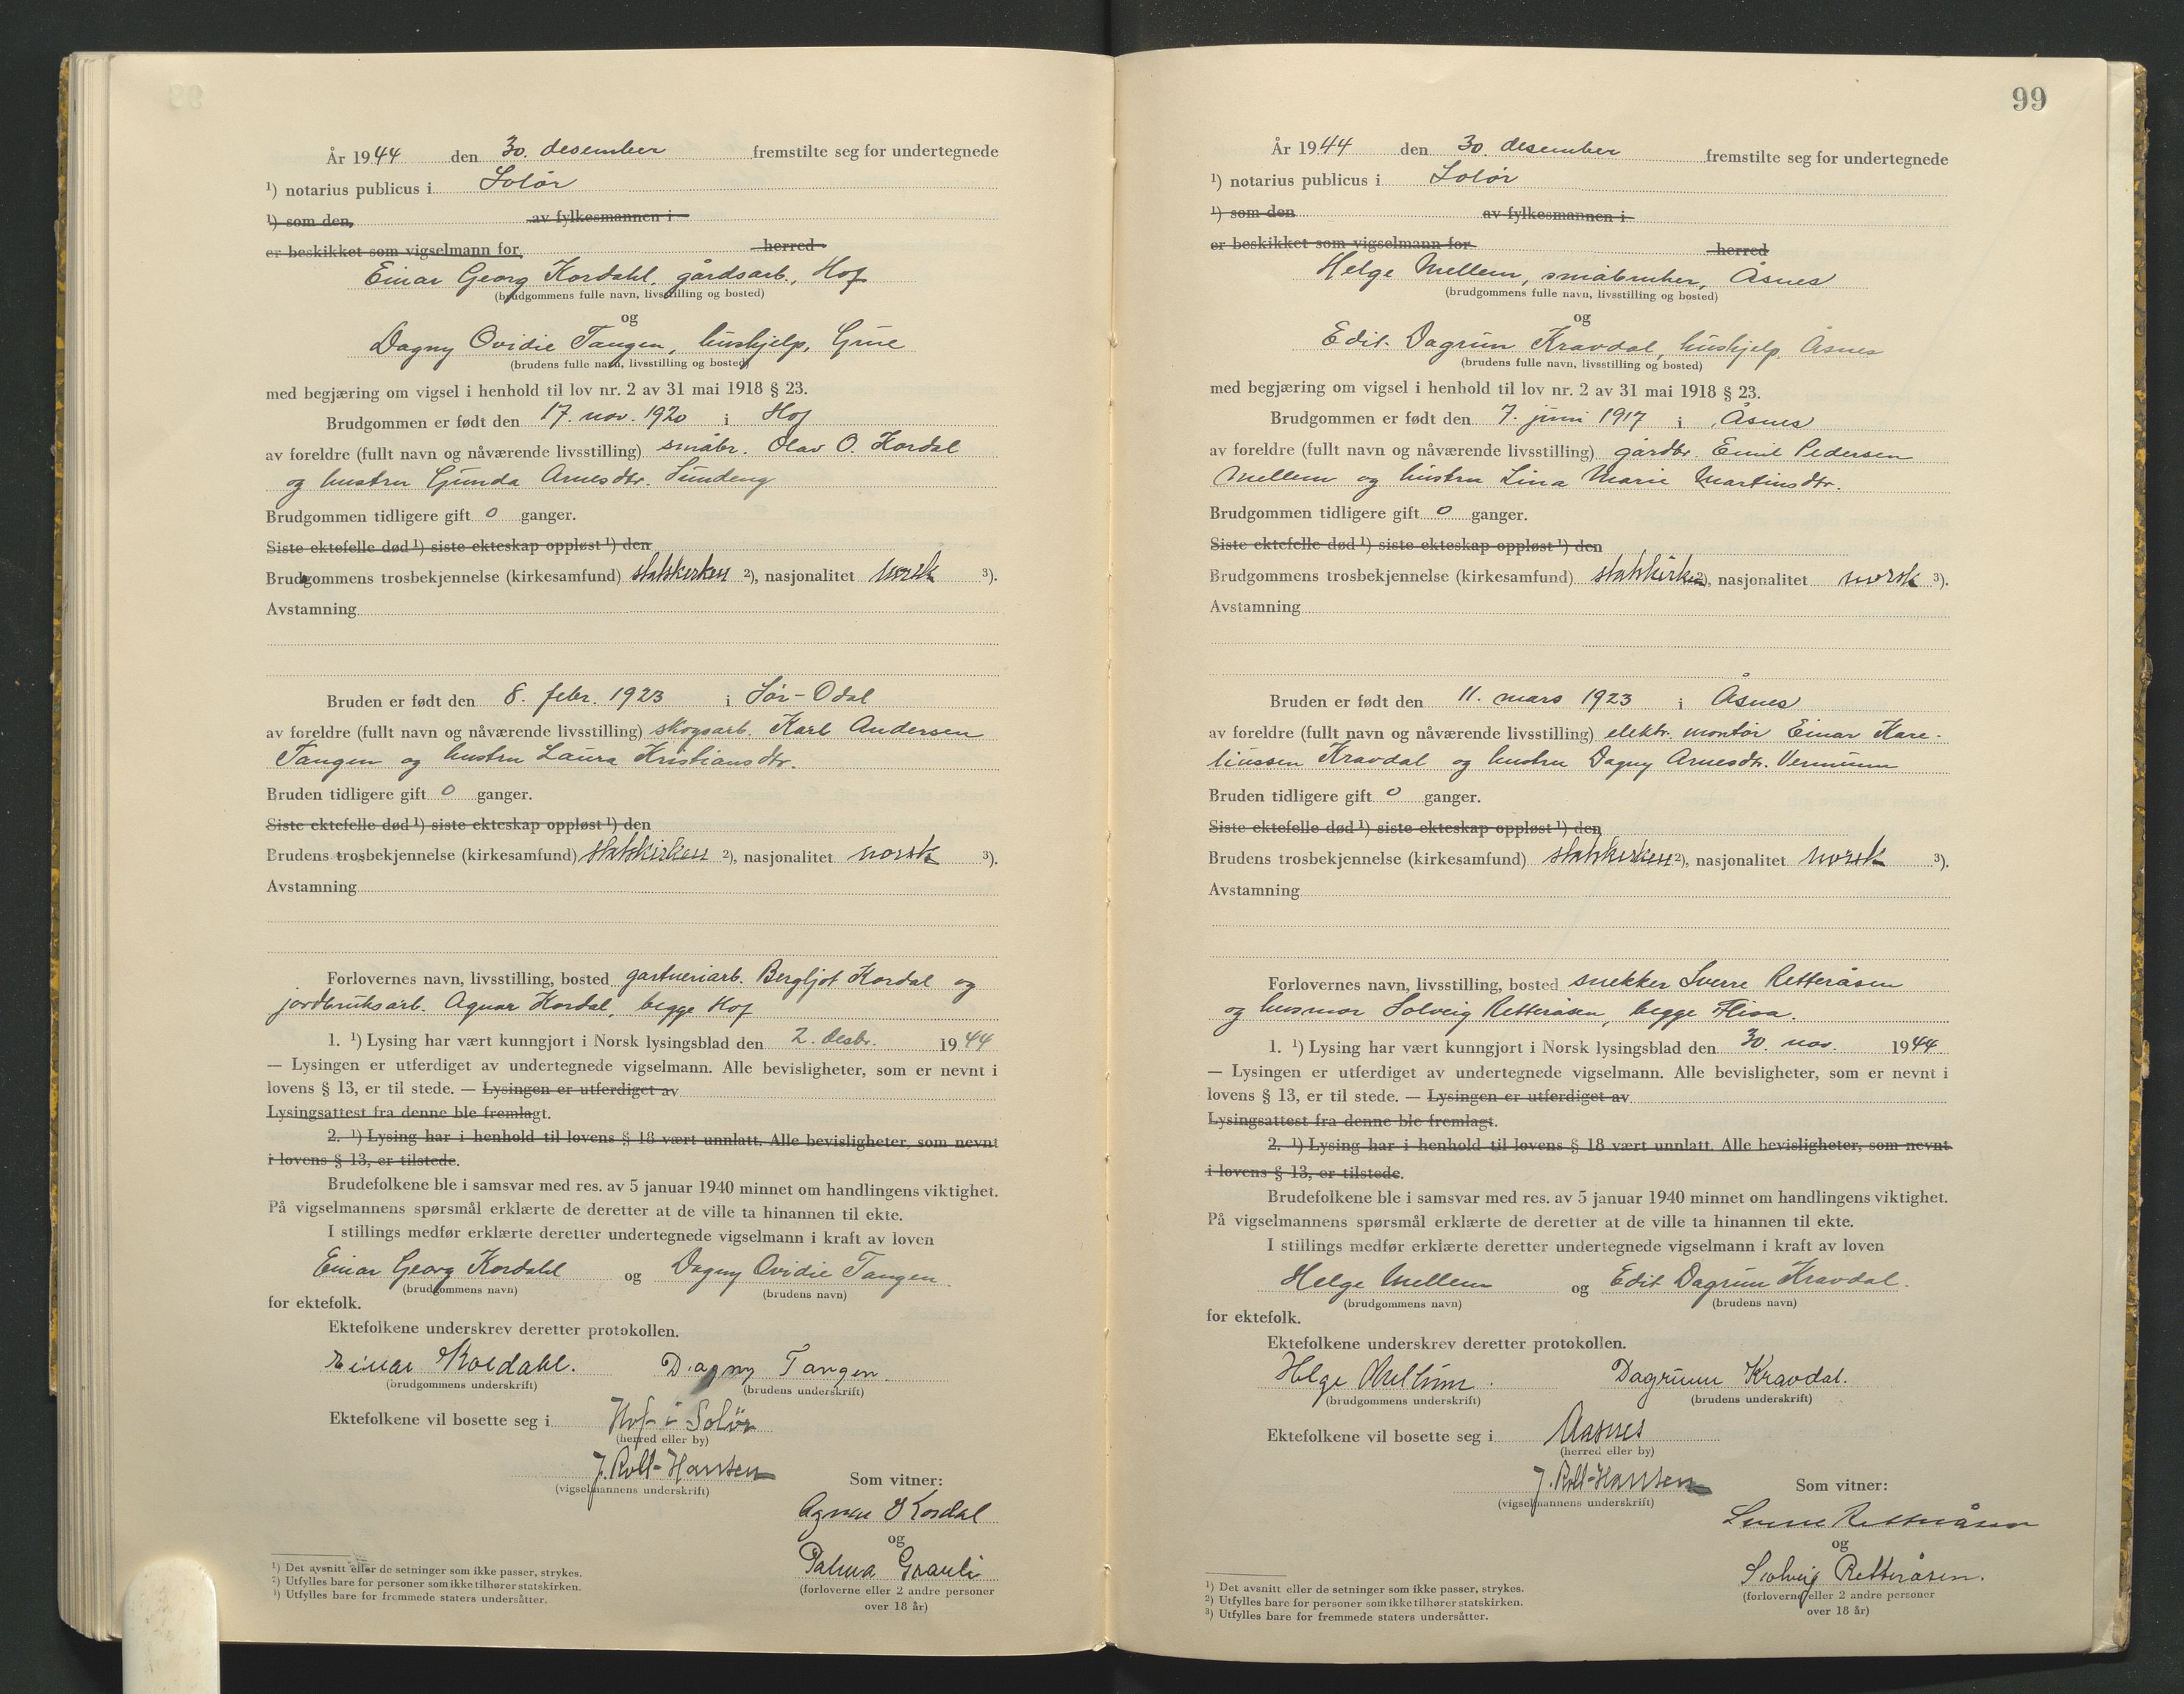 År 1944 den 30. desember fremstilte seg for undertegnede
¹) notarius publicus i Solør
¹) som den, av fylkesmannen i
er beskikket som vigselmann for herred
Einar Georg Kordahl, gårdsarb., Hof
(brudgommens fulle navn, livsstilling og bosted)
og
Dagny Ovidie Tangen, hushjelp, Grue
(brudens fulle navn, livsstilling og bosted)
med begjæring om vigsel i henhold til lov nr. 2 av 31 mai 1918 § 23.
Brudgommen er født den 17. nov. 1920 i Hof
av foreldre (fullt navn og nåværende livsstilling) småbr. Olav O. Kordal
og hustru Gunda Arnesdtr. Sundeng
Brudgommen tidligere gift 0 ganger.
Siste ektefelle død ¹) siste ekteskap oppløst ¹) den
Brudgommens trosbekjennelse (kirkesamfund) statskirken ²), nasjonalitet norsk ³).
Avstamning
Bruden er født den 8. febr. 1923 i Sør-Odal
av foreldre (fullt navn og nåværende livsstilling) skogsarb. Karl Andersen
Tangen og hustru Laura Kristiansdtr.
Bruden tidligere gift 0 ganger.
Siste ektefelle død ¹) siste ekteskap oppløst ¹) den
Brudens trosbekjennelse (kirkesamfund) statskirken ²), nasjonalitet norsk ³).
Avstamning
Forlovernes navn, livsstilling, bosted gartneriarb. Bergljot Kordal og
jordbruksarb. Agnar Kordal, begge Hof
1. ¹) Lysing har vært kunngjort i Norsk lysingsblad den 2. desbr. 1944
— Lysingen er utferdiget av undertegnede vigselmann. Alle bevisligheter, som er nevnt i
lovens § 13, er til stede. — Lysingen er utferdiget av
Lysingsattest fra denne ble fremlagt.
2. ¹) Lysing har i henhold til lovens § 18 vært unnlatt. Alle bevisligheter, som nevnt
i lovens § 13, er tilstede.
Brudefolkene ble i samsvar med res. av 5 januar 1940 minnet om handlingens viktighet.
På vigselmannens spørsmål erklærte de deretter at de ville ta hinannen til ekte.
I stillings medfør erklærte deretter undertegnede vigselmann i kraft av loven
Einar Georg Kordahl og Dagny Ovidie Tangen
(brudgommens navn) (brudens navn)
for ektefolk.
Ektefolkene underskrev deretter protokollen.
Einar Kordahl. Dagny Tangen.
(brudgommens underskrift) (brudens underskrift)
Ektefolkene vil bosette seg i Hof i Solør
(herred eller by)
J. Roll-Hansen
(vigselmannens underskrift)
Som vitner:
Agnar Kordal
og
Palma Grauli
(forloverne eller 2 andre personer
over 18 år)
¹) Det avsnitt eller de setninger som ikke passer, strykes.
²) Utfylles bare for personer som ikke tilhører statskirken.
³) Utfylles bare for fremmede staters undersåtter.
99
År 1944 den 30. desember fremstilte seg for undertegnede
¹) notarius publicus i Solør
¹) som den av fylkesmannen i
er beskikket som vigselmann for herred
Helge Mellem, småbruker, Åsnes
(brudgommens fulle navn, livsstilling og bosted)
og
Edit Dagrun Kravdal, hushjelp, Åsnes
(brudens fulle navn, livsstilling og bosted)
med begjæring om vigsel i henhold til lov nr. 2 av 31 mai 1918 § 23.
Brudgommen er født den 7. juni 1917 i Åsnes
av foreldre (fullt navn og nåværende livsstilling) gårdbr. Emil Pedersen
Mellem og hustru Lina Marie Martinsdtr.
Brudgommen tidligere gift 0 ganger.
Siste ektefelle død ¹) siste ekteskap oppløst ¹) den
Brudgommens trosbekjennelse (kirkesamfund) statskirken ²), nasjonalitet norsk ³).
Avstamning
Bruden er født den 11. mars 1923 i Åsnes
av foreldre (fullt navn og nåværende livsstilling) elektr. montør Einar Kare-
liussen Kravdal og hustru Dagny Arnesdtr. Vermunn
Bruden tidligere gift 0 ganger.
Siste ektefelle død ¹) siste ekteskap oppløst ¹) den
Brudens trosbekjennelse (kirkesamfund) statskirken ²), nasjonalitet norsk ³).
Avstamning
Forlovernes navn, livsstilling, bosted snekker Sverre Retteråsen
og husmor Solveig Retteråsen, begge Flisa.
1. ¹) Lysing har vært kunngjort i Norsk lysingsblad den 30. nov. 1944
— Lysingen er utferdiget av undertegnede vigselmann. Alle bevisligheter, som er nevnt i
lovens § 13, er til stede. — Lysingen er utferdiget av
Lysingsattest fra denne ble fremlagt.
2. ¹) Lysing har i henhold til lovens § 18 vært unnlatt. Alle bevisligheter, som nevnt
i lovens § 13, er tilstede.
Brudefolkene ble i samsvar med res. av 5 januar 1940 minnet om handlingens viktighet.
På vigselmannens spørsmål erklærte de deretter at de ville ta hinannen til ekte.
I stillings medfør erklærte deretter undertegnede vigselmann i kraft av loven
Helge Mellem og Edit Dagrun Kravdal.
(brudgommens navn) (brudens navn)
for ektefolk.
Ektefolkene underskrev deretter protokollen.
Helge Mellem. Dagrunn Kravdal.
(brudgommens underskrift) (brudens underskrift)
Ektefolkene vil bosette seg i Aasnes
(herred eller by)
J. Roll-Hansen
(vigselmannens underskrift)
Som vitner:
Sverre Retteråsen
og
Solveig Retteråsen.
(forloverne eller 2 andre personer
over 18 år)
¹) Det avsnitt eller de setninger som ikke passer, strykes.
²) Utfylles bare for personer som ikke tilhører statskirken.
³) Utfylles bare for fremmede staters undersåtter.